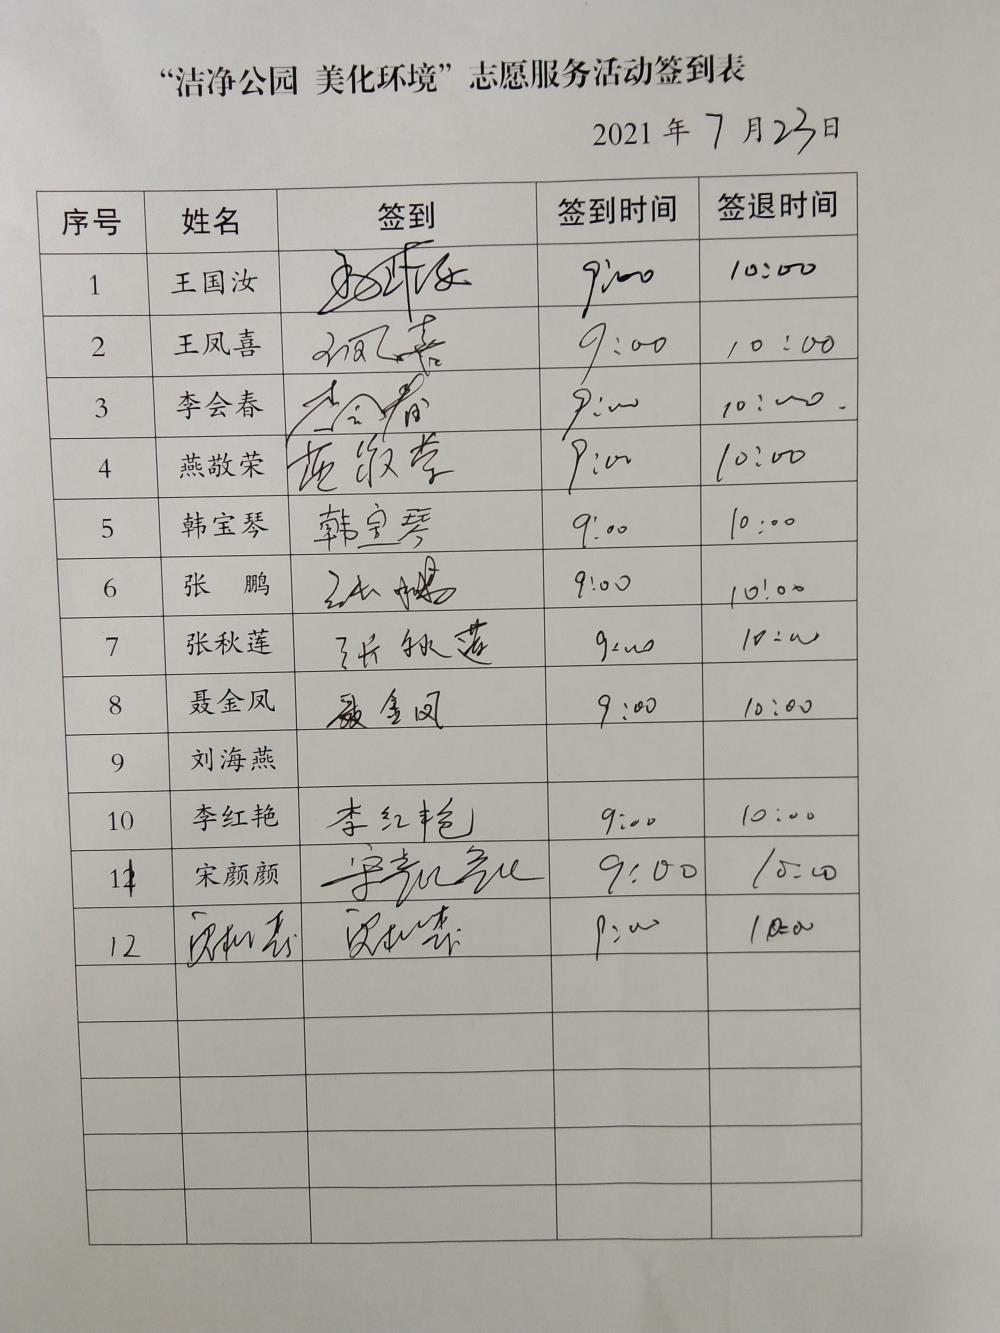 “洁净公园 美化环境”志愿服务活动签到表
2021 年 7 月 23 日
序号 姓名 签到 签到时间 签退时间
1 王国汝 9:00 10:00
2 王凤喜 王凤喜 9:00 10:00
3 李会春 李会春 9:00 10:00
4 燕敬荣 燕敬荣 9:00 10:00
5 韩宝琴 韩宝琴 9:00 10:00
6 张 鹏 张鹏 9:00 10:00
7 张秋莲 张秋莲 9:00 10:00
8 聂金凤 聂金凤 9:00 10:00
9 刘海燕
10 李红艳 李红艳 9:00 10:00
11 宋颜颜 宋颜颜 9:00 10:00
12 9:00 10:00